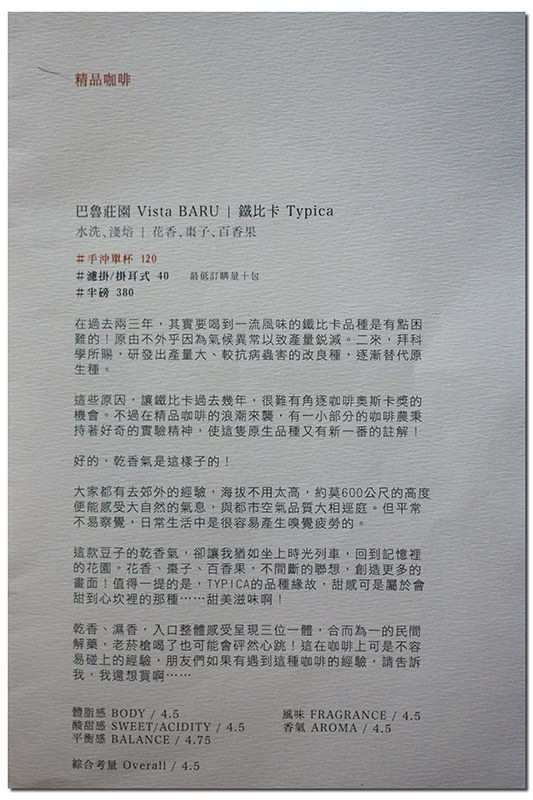 精品咖啡
巴魯莊園 Vista BARU | 鐵比卡 Typica
水洗、淺焙 | 花香、棗子、百香果
#手沖單杯 120
#濾掛/掛耳式 40 最低訂購量十包
#半磅 380
在過去兩三年，其實要喝到一流風味的鐵比卡品種是有點困
難的！原由不外乎因為氣候異常以致產量銳減。二來，拜科
學所賜，研發出產量大、較抗病蟲害的改良種，逐漸替代原
生種。
這些原因，讓鐵比卡過去幾年，很難有角逐咖啡奧斯卡獎的
機會。不過在精品咖啡的浪潮來襲，有一小部分的咖啡農秉
持著好奇的實驗精神，使這隻原生品種又有新一番的註解！
好的，乾香氣是這樣子的！
大家都有去郊外的經驗，海拔不用太高，約莫600公尺的高度
便能感受大自然的氣息，與都市空氣品質大相逕庭。但平常
不易察覺，日常生活中是很容易產生嗅覺疲勞的。
這款豆子的乾香氣，卻讓我猶如坐上時光列車，回到記憶裡
的花園。花香、棗子、百香果，不間斷的聯想，創造更多的
畫面！值得一提的是，TYPICA的品種緣故，甜感可是屬於會
甜到心坎裡的那種……甜美滋味啊！
乾香、濕香，入口整體感受呈現三位一體，合而為一的民間
解藥，老菸槍喝了也可能會砰然心跳！這在咖啡上可是不容
易碰上的經驗，朋友們如果有遇到這種咖啡的經驗，請告訴
我，我還想買啊……
體脂感 BODY / 4.5 風味 FRAGRANCE / 4.5
酸甜感 SWEET/ACIDITY / 4.5 香氣 AROMA / 4.5
平衡感 BALANCE / 4.75
綜合考量 Overall / 4.5